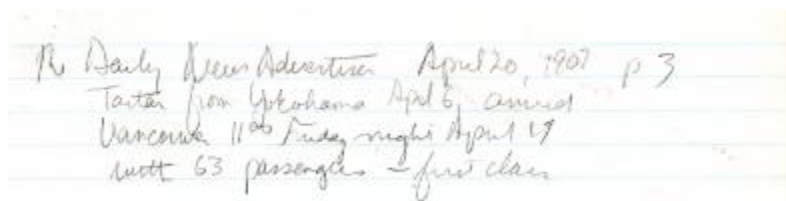 The Daily News Advertiser April 20, 1907 p 3
Tartar from Yokohama April 6, arrived
Vancouver 11°° Friday night April 19
with 63 passengers – first class